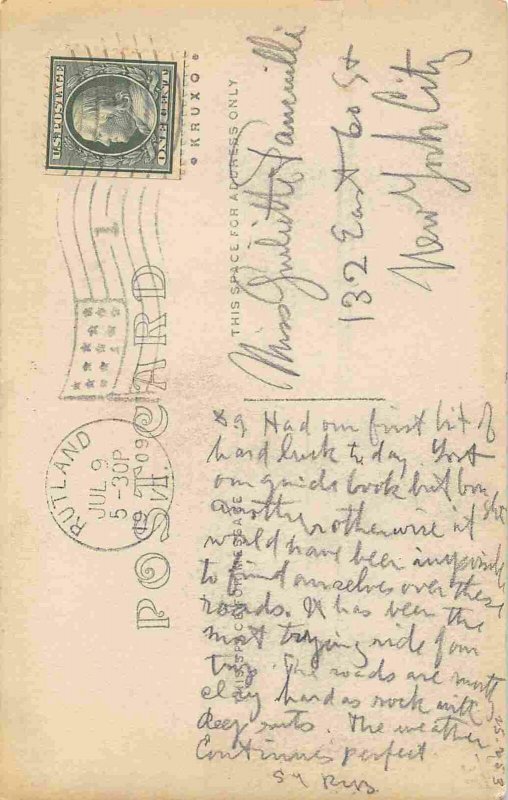 POST CARD
THIS SPACE FOR ADDRESS ONLY
KRUXO
U.S. POSTAGE
ONE CENT
1
RUTLAND
JUL 9
5-30P
1909
VT.
Miss Juliette
132 East 60 St
New York City
Had our first bit of
hard luck today. Lost
our guide book but bought
another otherwise it
would have been impossible
to find ourselves over these
roads. It has been the
most trying ride of our
trip. The roads are mostly
clay hard as rock with
deep ruts. The weather
Continues perfect